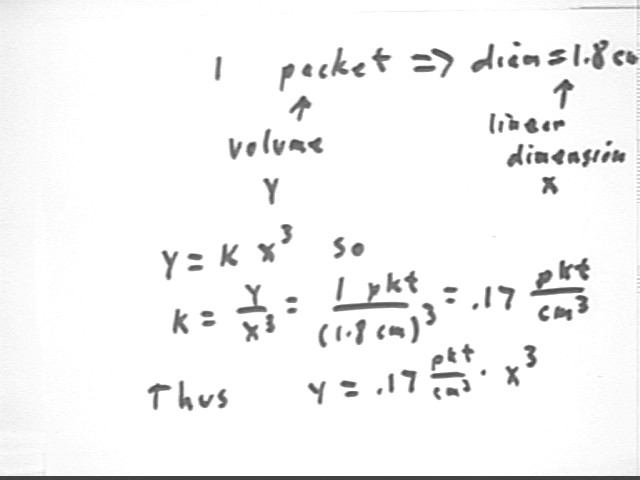 1 packet => diam = 1.8 cm
↑ ↑
volume linear
dimension
Y x
y = k x³ so
k = y/x³ = 1 pkt/(1.8 cm)³ = .17 pkt/cm³
Thus y = .17 pkt/cm³ · x³